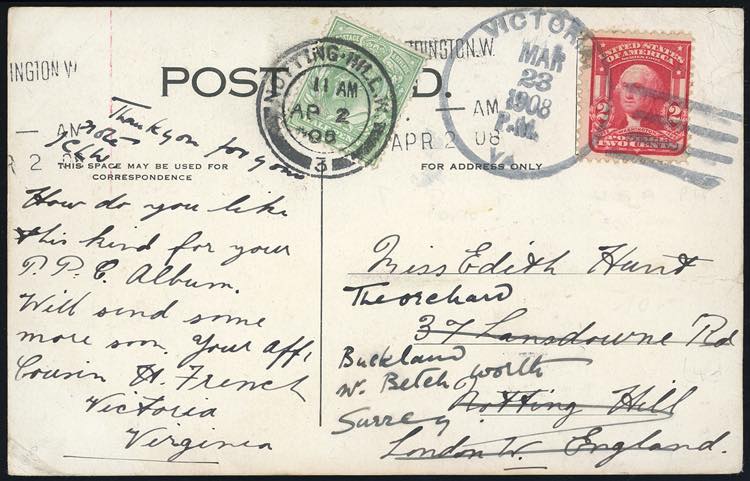 PADDINGTON.W.
VICTORIA
MAR
23
1908
P.M.
VA.
UNITED STATES
OF AMERICA
2 2
WASHINGTON
POSTAGE
TWO CENTS
POSTAGE
NOTTING-HILL.W.
11 AM
AP 2
08
3
DINGTON W
POST D.
— AM
2 08
— AM
APR 2 08
Thank you for your
note
THIS SPACE MAY BE USED FOR
CORRESPONDENCE
FOR ADDRESS ONLY
How do you like
this kind for your
P.P.C. Album.
Will send some
more soon. Your aff.
Cousin H. French
Victoria
Virginia
Miss Edith Hunt
The orchard
37 Lansdowne Rd
Buckland
Nr. Betchworth
Notting Hill
Surrey
London W. England.